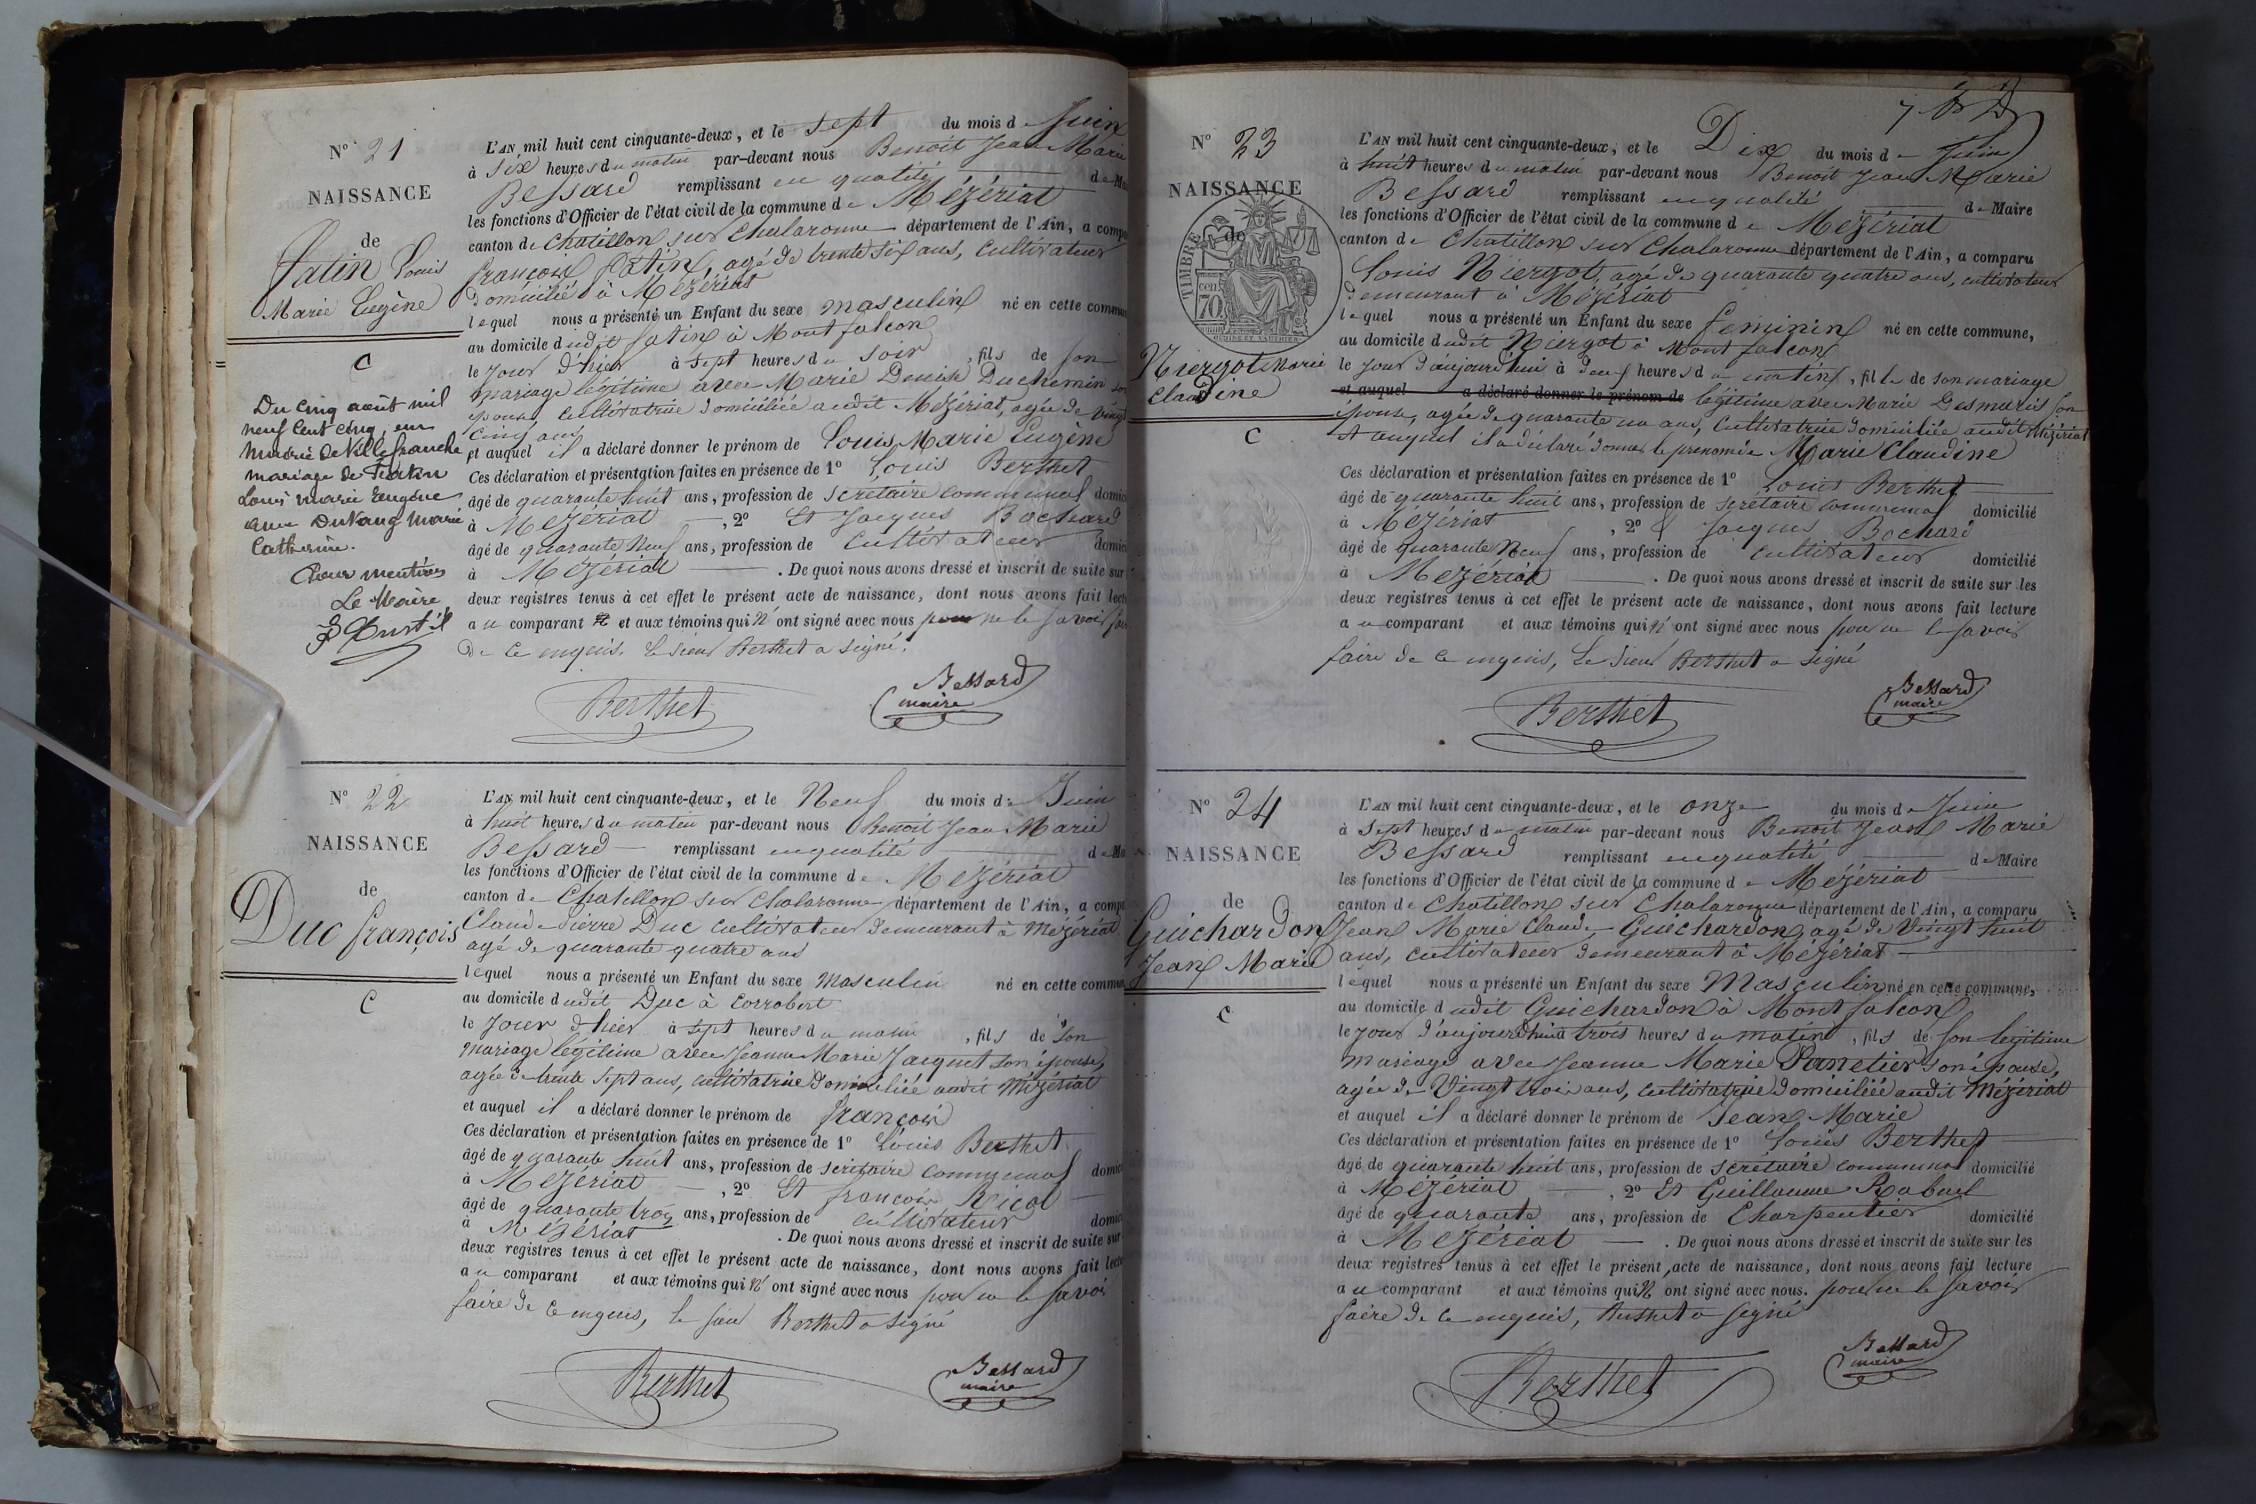 N° 21
NAISSANCE
de
Fatin Louis
Marie Eugène
C
Du cinq août mil
neuf cent cinq, en
mairie de Villefranche
mariage de
Louis marie Eugène
avec marie
Catherine.
Pour mention
Le Maire
L'AN mil huit cent cinquante-deux, et le sept du mois de Juin
à six heures du matin par-devant nous Benoit Jean Marie
Bessard remplissant en qualité de
les fonctions d'Officier de l'état civil de la commune de Mézériat
canton de Chatillon sur Chalaronne département de l'Ain, a
françois fatin, agé de trente six ans, Cultivateur
domicilié à Mézériat
lequel nous a présenté un Enfant du sexe masculin né en cette
au domicile dudit fatin à Montfalcon
le jour d'hier à sept heures du soir, fils de son
mariage légitime avec Marie Denise Duchemin son
épouse, cultivatrice domiciliée audit Mézériat, agée de vingt
cinq ans
et auquel il a déclaré donner le prénom de Louis Marie Eugène
Ces déclaration et présentation faites en présence de 1° Louis Berthet
âgé de quarante huit ans, profession de secrétaire communal
à Mézériat, 2° Et Jacques Bochard
âgé de quarante Neuf ans, profession de Cultivateur
à Mézériat. De quoi nous avons dressé et inscrit de suite sur
deux registres tenus à cet effet le présent acte de naissance, dont nous avons fait
au comparant et aux témoins qui n' ont signé avec nous pour ne le savoir
De ce enquis. le sieur Berthet a signé.
Berthet
Bessard
maire
N° 22
NAISSANCE
de
Duc françois
C
L'AN mil huit cent cinquante-deux, et le Neuf du mois de Juin
à huit heures du matin par-devant nous Benoit Jean Marie
Bessard remplissant en qualité de
les fonctions d'Officier de l'état civil de la commune de Mézériat
canton de Chatillon sur Chalaronne département de l'Ain, a
Claude Pierre Duc Cultivateur demeurant à Mézériat
agé de quarante quatre ans
lequel nous a présenté un Enfant du sexe Masculin né en cette
au domicile dudit Duc à Corrobert
le jour d'hier à sept heures du matin, fils de son
mariage légitime avec Jeanne Marie Jacquet son épouse,
agée de trente sept ans, cultivatrice domiciliée audit Mézériat
et auquel il a déclaré donner le prénom de françois
Ces déclaration et présentation faites en présence de 1° Louis Berthet
âgé de quarante huit ans, profession de secrétaire communal
à Mézériat, 2° Et françois Ricol
âgé de quarante trois ans, profession de cultivateur
à Mézériat. De quoi nous avons dressé et inscrit de suite sur
deux registres tenus à cet effet le présent acte de naissance, dont nous avons fait
au comparant et aux témoins qui n' ont signé avec nous pour ne le savoir
faire de ce enquis, le sieur Berthet a signé
Berthet
Bessard
maire
N° 23
NAISSANCE
de
TIMBRE
cen
70
Niergot Marie
Claudine
C
L'AN mil huit cent cinquante-deux, et le Dix du mois de Juin
à huit heures du matin par-devant nous Benoit Jean Marie
Bessard remplissant en qualité de Maire
les fonctions d'Officier de l'état civil de la commune de Mézériat
canton de Chatillon sur Chalaronne département de l'Ain, a comparu
Louis Niergot, agé de quarante quatre ans, cultivateur
demeurant à Mézériat
lequel nous a présenté un Enfant du sexe feminin né en cette commune,
au domicile dudit Niergot à Montfalcon
le jour d'aujourd'hui à deux heures du matin, fille de son mariage
et auquel a déclaré donner le prénom de légitime avec Marie Desmaris son
épouse, agée de quarante un ans, Cultivatrice domiciliée audit Mézériat
et auquel il a déclaré donner le prénom de Marie Claudine
Ces déclaration et présentation faites en présence de 1° Louis Berthet
âgé de quarante huit ans, profession de secrétaire communal domicilié
à Mézériat, 2° Jacques Bochard
âgé de quarante Neuf ans, profession de cultivateur domicilié
à Mézériat. De quoi nous avons dressé et inscrit de suite sur les
deux registres tenus à cet effet le présent acte de naissance, dont nous avons fait lecture
au comparant et aux témoins qui n' ont signé avec nous pour ne le savoir
faire de ce enquis, Le sieur Berthet a signé
Berthet
Bessard
maire
N° 24
NAISSANCE
de
Guichardon
Jean Marie
C
L'AN mil huit cent cinquante-deux, et le onze du mois de Juin
à sept heures du matin par-devant nous Benoit Jean Marie
Bessard remplissant en qualité de Maire
les fonctions d'Officier de l'état civil de la commune de Mézériat
canton de Chatillon sur Chalaronne département de l'Ain, a comparu
Jean Marie Claude Guichardon, agé de Vingt huit
ans, cultivateur demeurant à Mézériat
lequel nous a présenté un Enfant du sexe Masculin né en cette commune,
au domicile dudit Guichardon à Montfalcon
le jour d'aujourdhui à trois heures du matin, fils de son légitime
mariage avec Jeanne Marie Panetier son épouse,
agée de Vingt trois ans, cultivatrice domiciliée audit Mézériat
et auquel il a déclaré donner le prénom de Jean Marie
Ces déclaration et présentation faites en présence de 1° Louis Berthet
âgé de quarante huit ans, profession de secrétaire communal domicilié
à Mézériat, 2° Et Guillaume Rabuel
âgé de quarante ans, profession de Charpentier domicilié
à Mézériat. De quoi nous avons dressé et inscrit de suite sur les
deux registres tenus à cet effet le présent acte de naissance, dont nous avons fait lecture
au comparant et aux témoins qui n' ont signé avec nous. pour ne le savoir
faire de ce enquis, Berthet a signé
Berthet
Bessard
maire